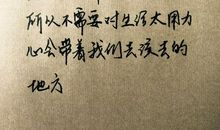 所以不需要对生活太用力
心会带着我们去该去的
地方